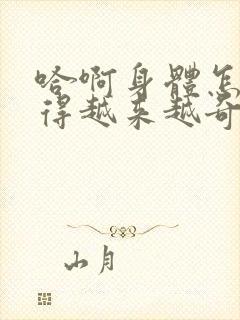 哈啊身體怎
得越来越奇
山月